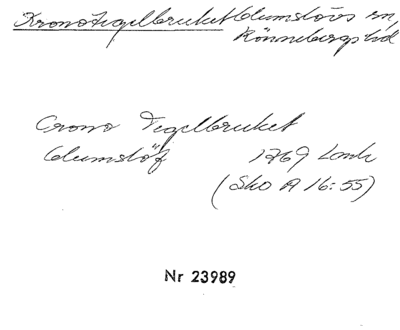 Kronotegelbruket Glumslövs sn,
Rönnebergs hd
Crono Tegelbruket
Glumslöf 1769 Lantm
(Sko A 16:55)
Nr 23989